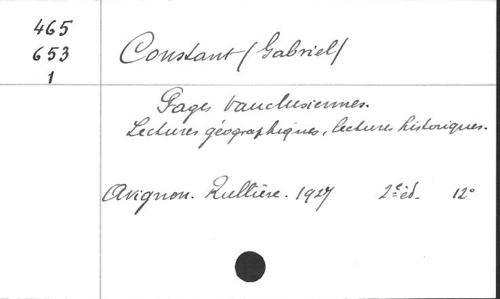 465
653
1
Constant (Gabriel)
Pages vauclusiennes.
Lectures géographiques, lectures historiques.
Avignon. Rullière. 1927 2e éd. 12°